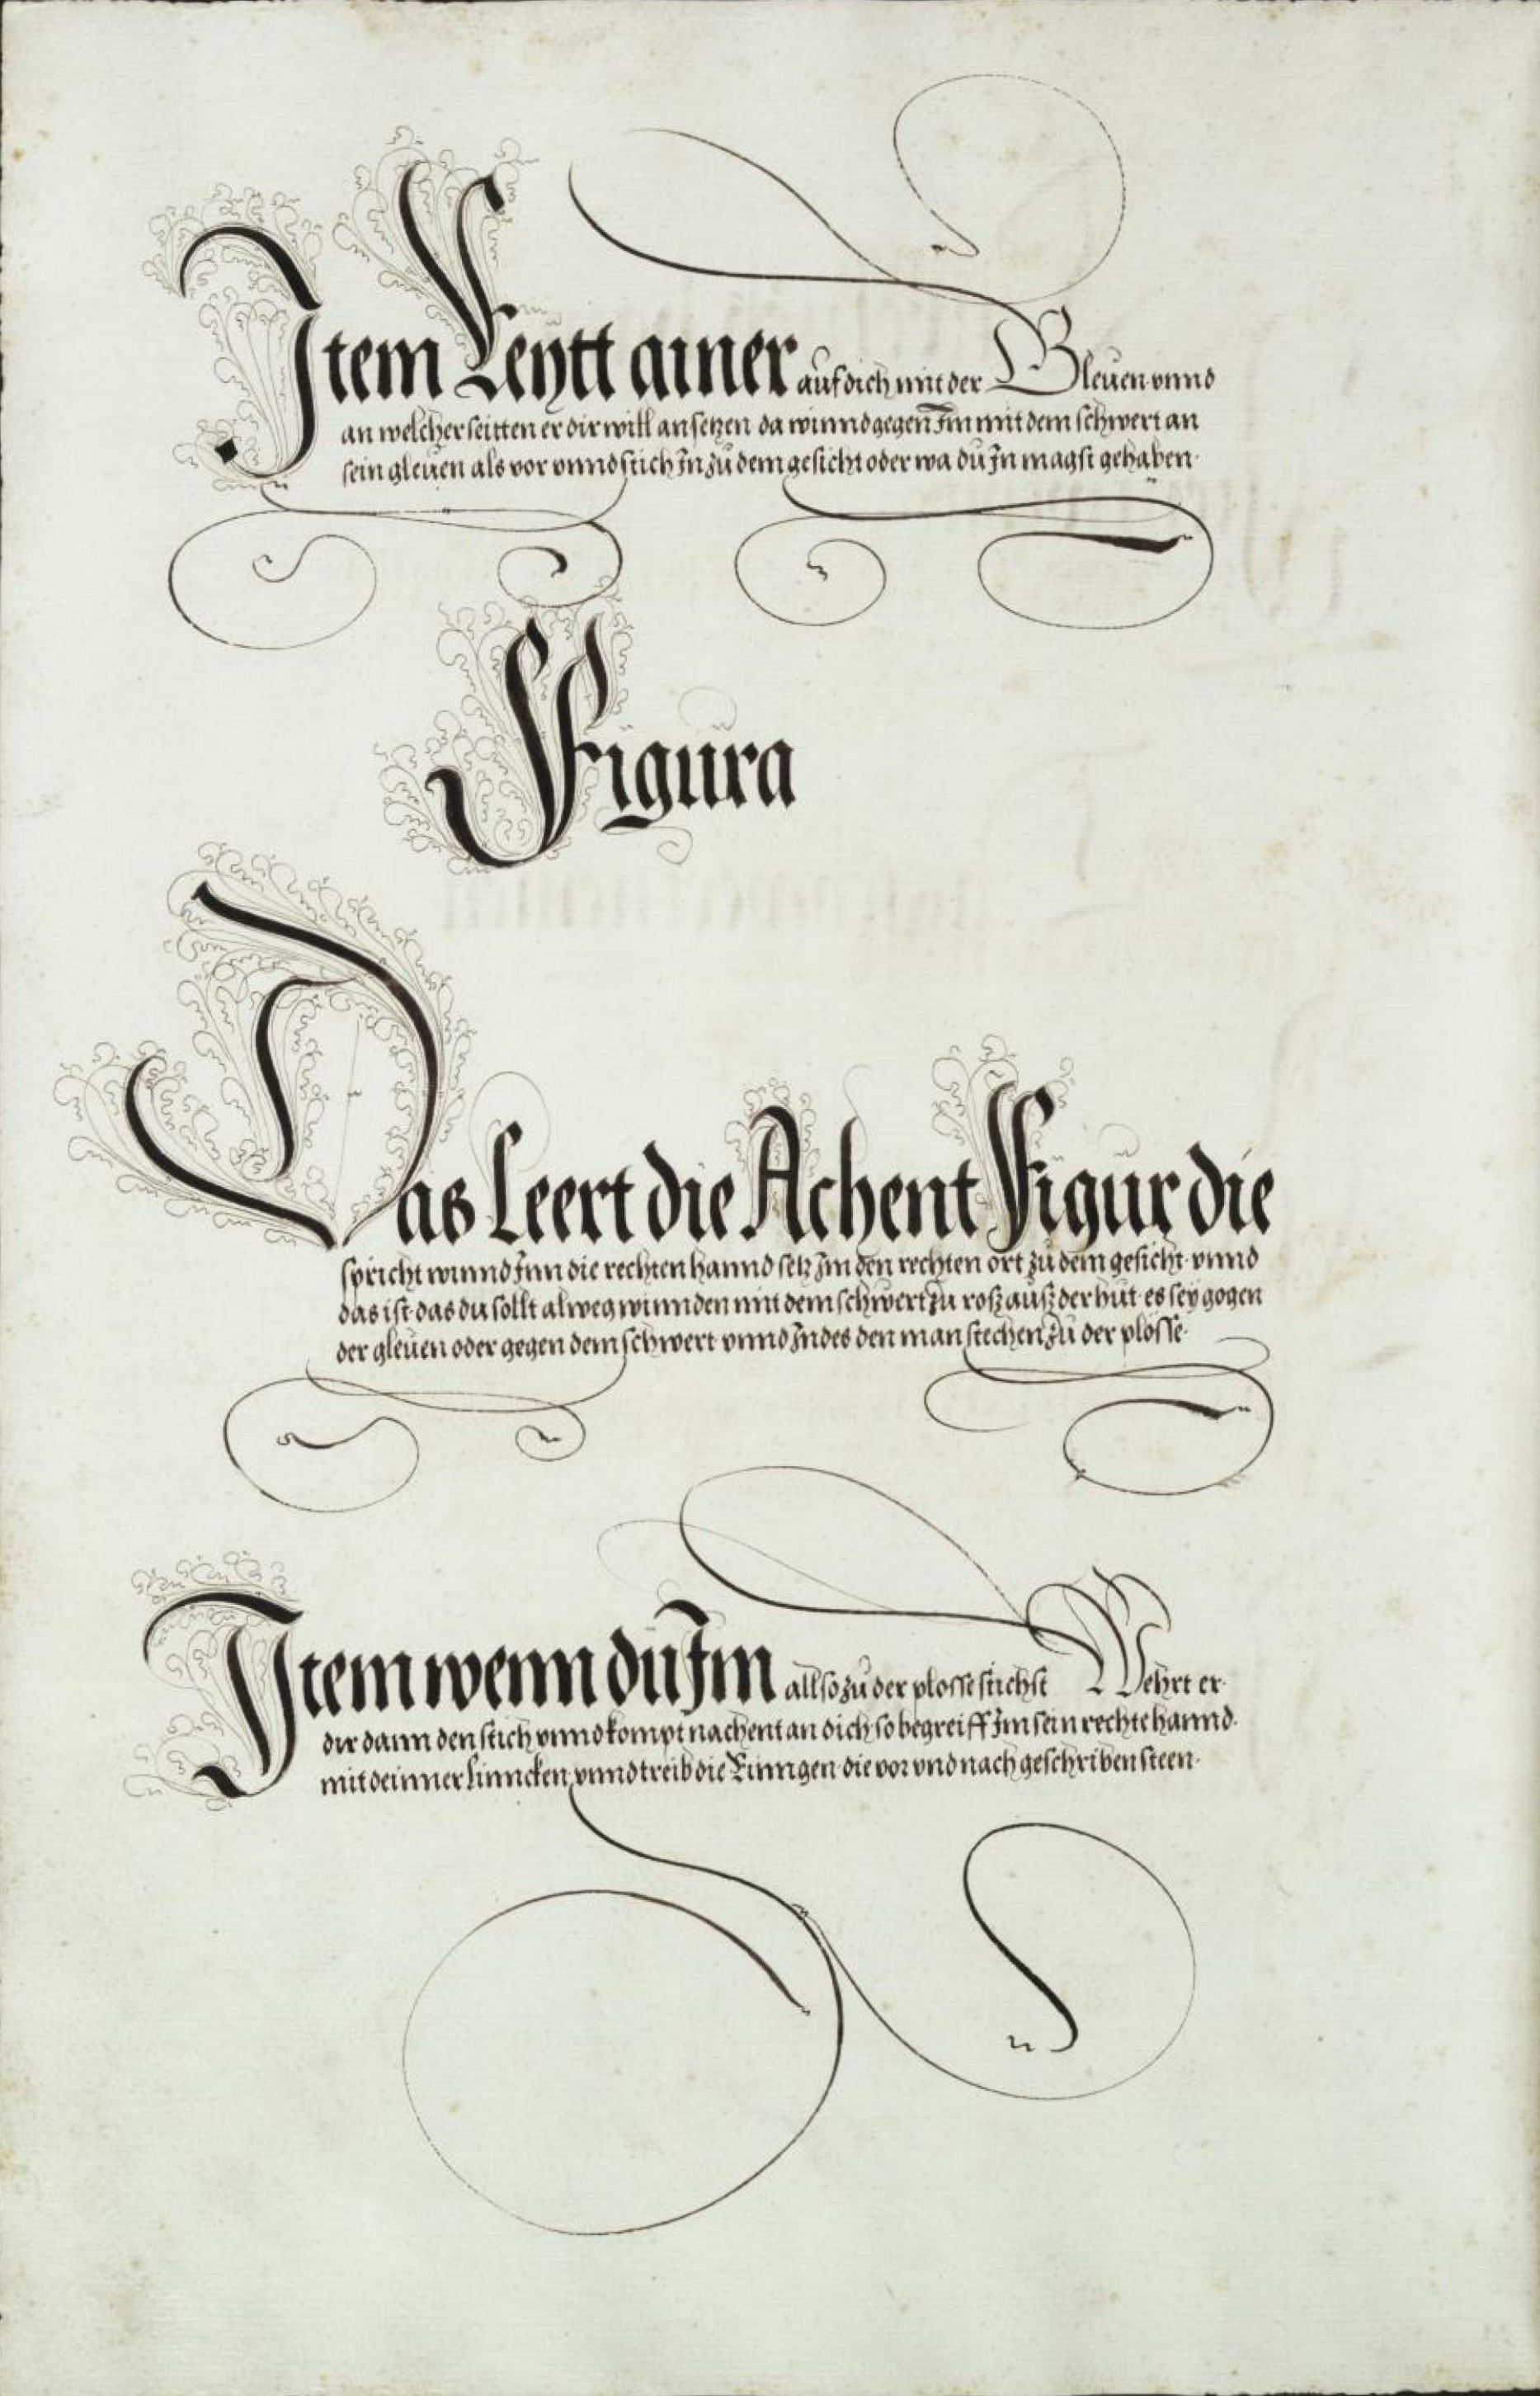 Item Reytt ainer auf dich mit der Gleuen vnnd
an welcher seitten er dir will ansetzen da winnd gegen Im mit dem schwert an
sein gleuen als vor vnnd stich In zu dem gesicht oder wa du In magst gehaben.
Figura
Das Leert die Achent Figur die
spricht winnd Inn die rechten hannd setz Im den rechten ort zu dem gesicht. vnnd
das ist. das du sollt alweg winnden mit dem schwert zu rosz ausz der hut. es sey gogen
der gleuen oder gegen dem schwert. vnnd Indes den man stechen zu der plosse.
Item wenn du Im allso zu der plosse stichst Wehrt er.
dir dann den stich vnnd kompt nachent an dich so begreiff Im sein rechte hannd.
mit deinner linncken. vnnd treib die Rinngen die vor vnd nach geschriben steen.